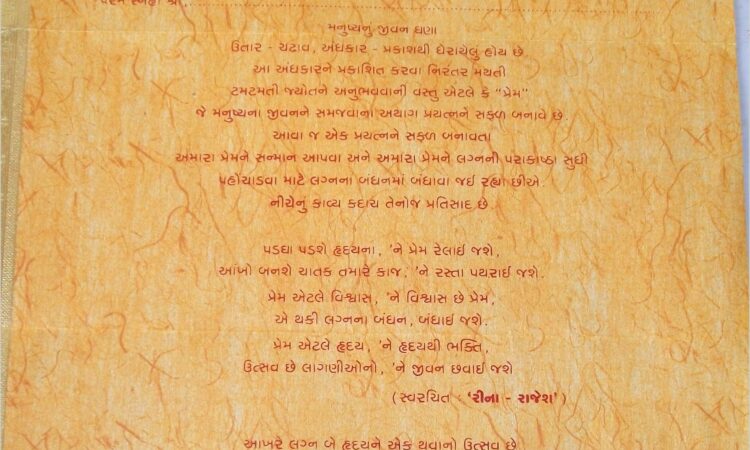 પરમ સ્નેહી શ્રી
મનુષ્યનું જીવન ઘણા
ઉતાર - ચઢાવ, અંધકાર - પ્રકાશથી ઘેરાયેલુ હોય છે.
આ અંધકારને પ્રકાશિત કરવા નિરંતર મથતી
ટમટમતી જ્યોતને અનુભવવાની વસ્તુ એટલે કે “પ્રેમ”
જે મનુષ્યના જીવનને સમજવાના અથાગ પ્રયત્નને સફળ બનાવે છે.
આવા જ એક પ્રયત્નને સફળ બનાવતા
અમારા પ્રેમને સન્માન આપવા અને અમારા પ્રેમને લગ્નની પરાકાષ્ઠા સુધી
પહોચાડવા માટે લગ્નના બંધનમાં બંધાવા જઈ રહ્યા છીએ.
નીચેનું કાવ્ય કદાચ તેનોજ પ્રતિસાદ છે.
પડઘા પડશે હૃદયના, 'ને પ્રેમ રેલાઈ જશે,
આંખો બનશે ચાતક તમારે કાજ, 'ને રસ્તા પથરાઈ જશે.
પ્રેમ એટલે વિશ્વાસ, 'ને વિશ્વાસ છે પ્રેમ,
એ થકી લગ્નના બંધન, બંધાઈ જશે.
પ્રેમ એટલે હૃદય, 'ને હૃદયથી ભક્તિ,
ઉત્સવ છે લાગણીઓનો, 'ને જીવન છવાઈ જશે
(સ્વરચિત : 'રીના - રાજેશ')
આખરે લગ્ન બે હૃદયને એક થવાનો ઉત્સવ છે